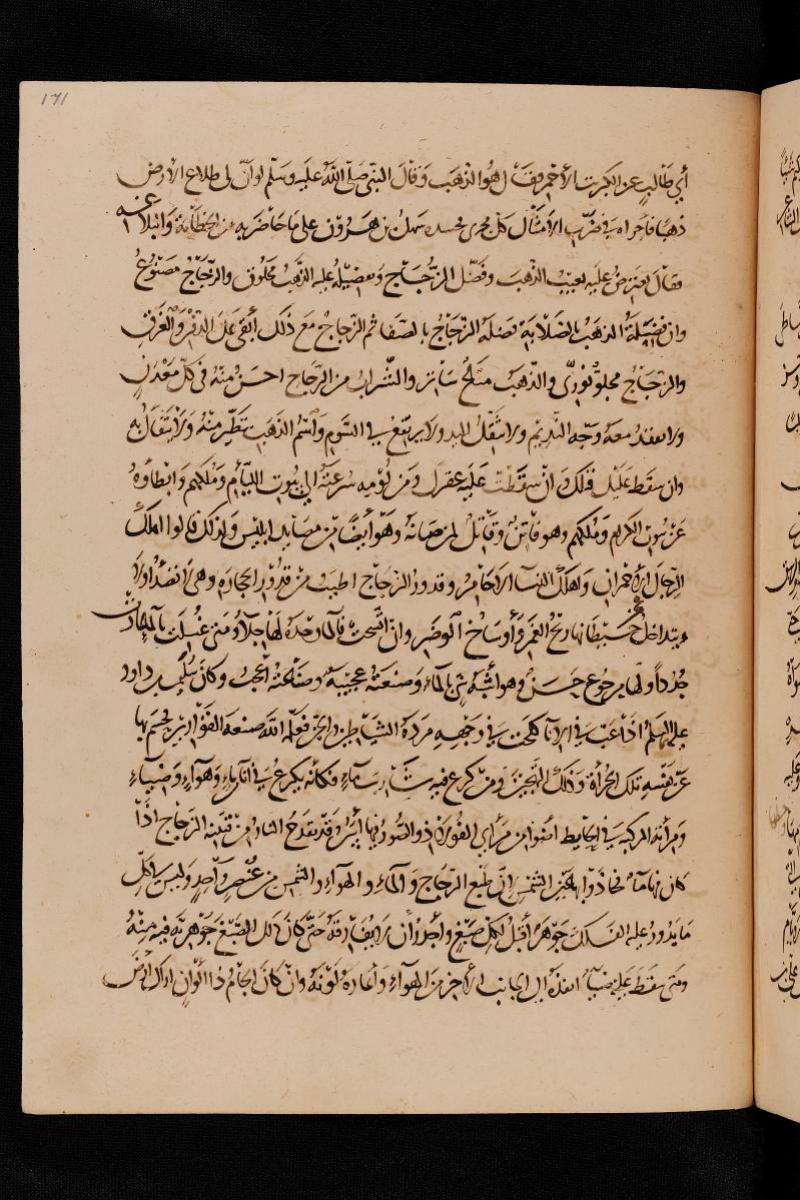 ١٢١
أبي طالب عن الكبريت الأحمر فقال هو الذهب وقال النبي صلى الله عليه وسلم لو أن لي طلاع الأرض
ذهبًا فأجراه في ضرب الأمثال كل مجرى سهل بن هرون على ما حاضر به من الخطابة والبلاغة
فقال يعترض عليه بعيب الذهب وفضل الزجاج وتفضيله عليه الذهب مخلوق والزجاج مصنوع
وان فضيلة الذهب بالصلابة فضله الزجاج بالصفا ثم الزجاج مع ذلك أبقى على الدفن والغرق
والزجاج مجلو نوري والذهب متلح ساتر والشراب من الزجاج احسن منه في كل معدن
ولا يفقد معه وجه النديم ولا يثقل اليد ولا يرتفع في السوم واسم الذهب يتطير منه ولا يتفال به
وان سقط عليك قتلك وان سقطت عليه عقرك ومن لؤمه سرعته الى بيوت اللئام وملكهم وابطاوه
عن بيوت الكرام وملكهم وهو فاتن وقاتل لمن صانه وهو أيضًا من مصايد ابليس ولذلك قالوا اهلك
الرجال الأحمران واهلك النسا الاحامر وقدور الزجاج اطيب من قدور الحجارة وهي لا تصدأ ولا
يتداخل حيطانها ريح الغمر وأوساخ الوضر وان اتسخت فالماء وحده لها جلاء ومتى غسلت بالماء عادت
جددًا ولها مرجوع حسن وهو أشبه شي بالماء وصنعته عجيبة وصناعته أعجب وكان سليمن بن داود
عليه السلم اذا عب في الاناء كلحت في وجهه مردة الشياطين والجن فعلمه الله صنعة القوارير فحسم بها
عن نفسه تلك الجرأة وذلك التهجين ومن كرع فيه شارب ماء فكأنه يكرع في اناء ماء وهواء وضياء
ومرآته المركبة في الحايط اضوا من مرآي الفولاذ والصور فيها أبين وقد تقدح النار من قنينة الزجاج اذا
كان فيها ماء فحاذوا بها عين الشمس لأن طبع الزجاج والماء والهواء والشمس من عنصر واحد وليس في كل
ما يدور عليه الفلك جوهر أقبل لكل صبغ وأجدر أن لا يفارقه حتى كأن ذلك الصبغ جوهرية فيه منه
ومتى سقط عليه ضياء انفذه الى الجانب الآخر من الهواء وأعاره لونه وان كان الجام ذا الوان اراك أرض